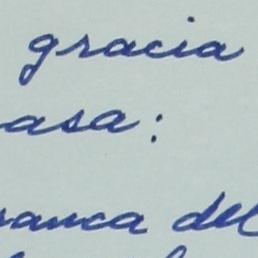 gracia
asa:
anca del